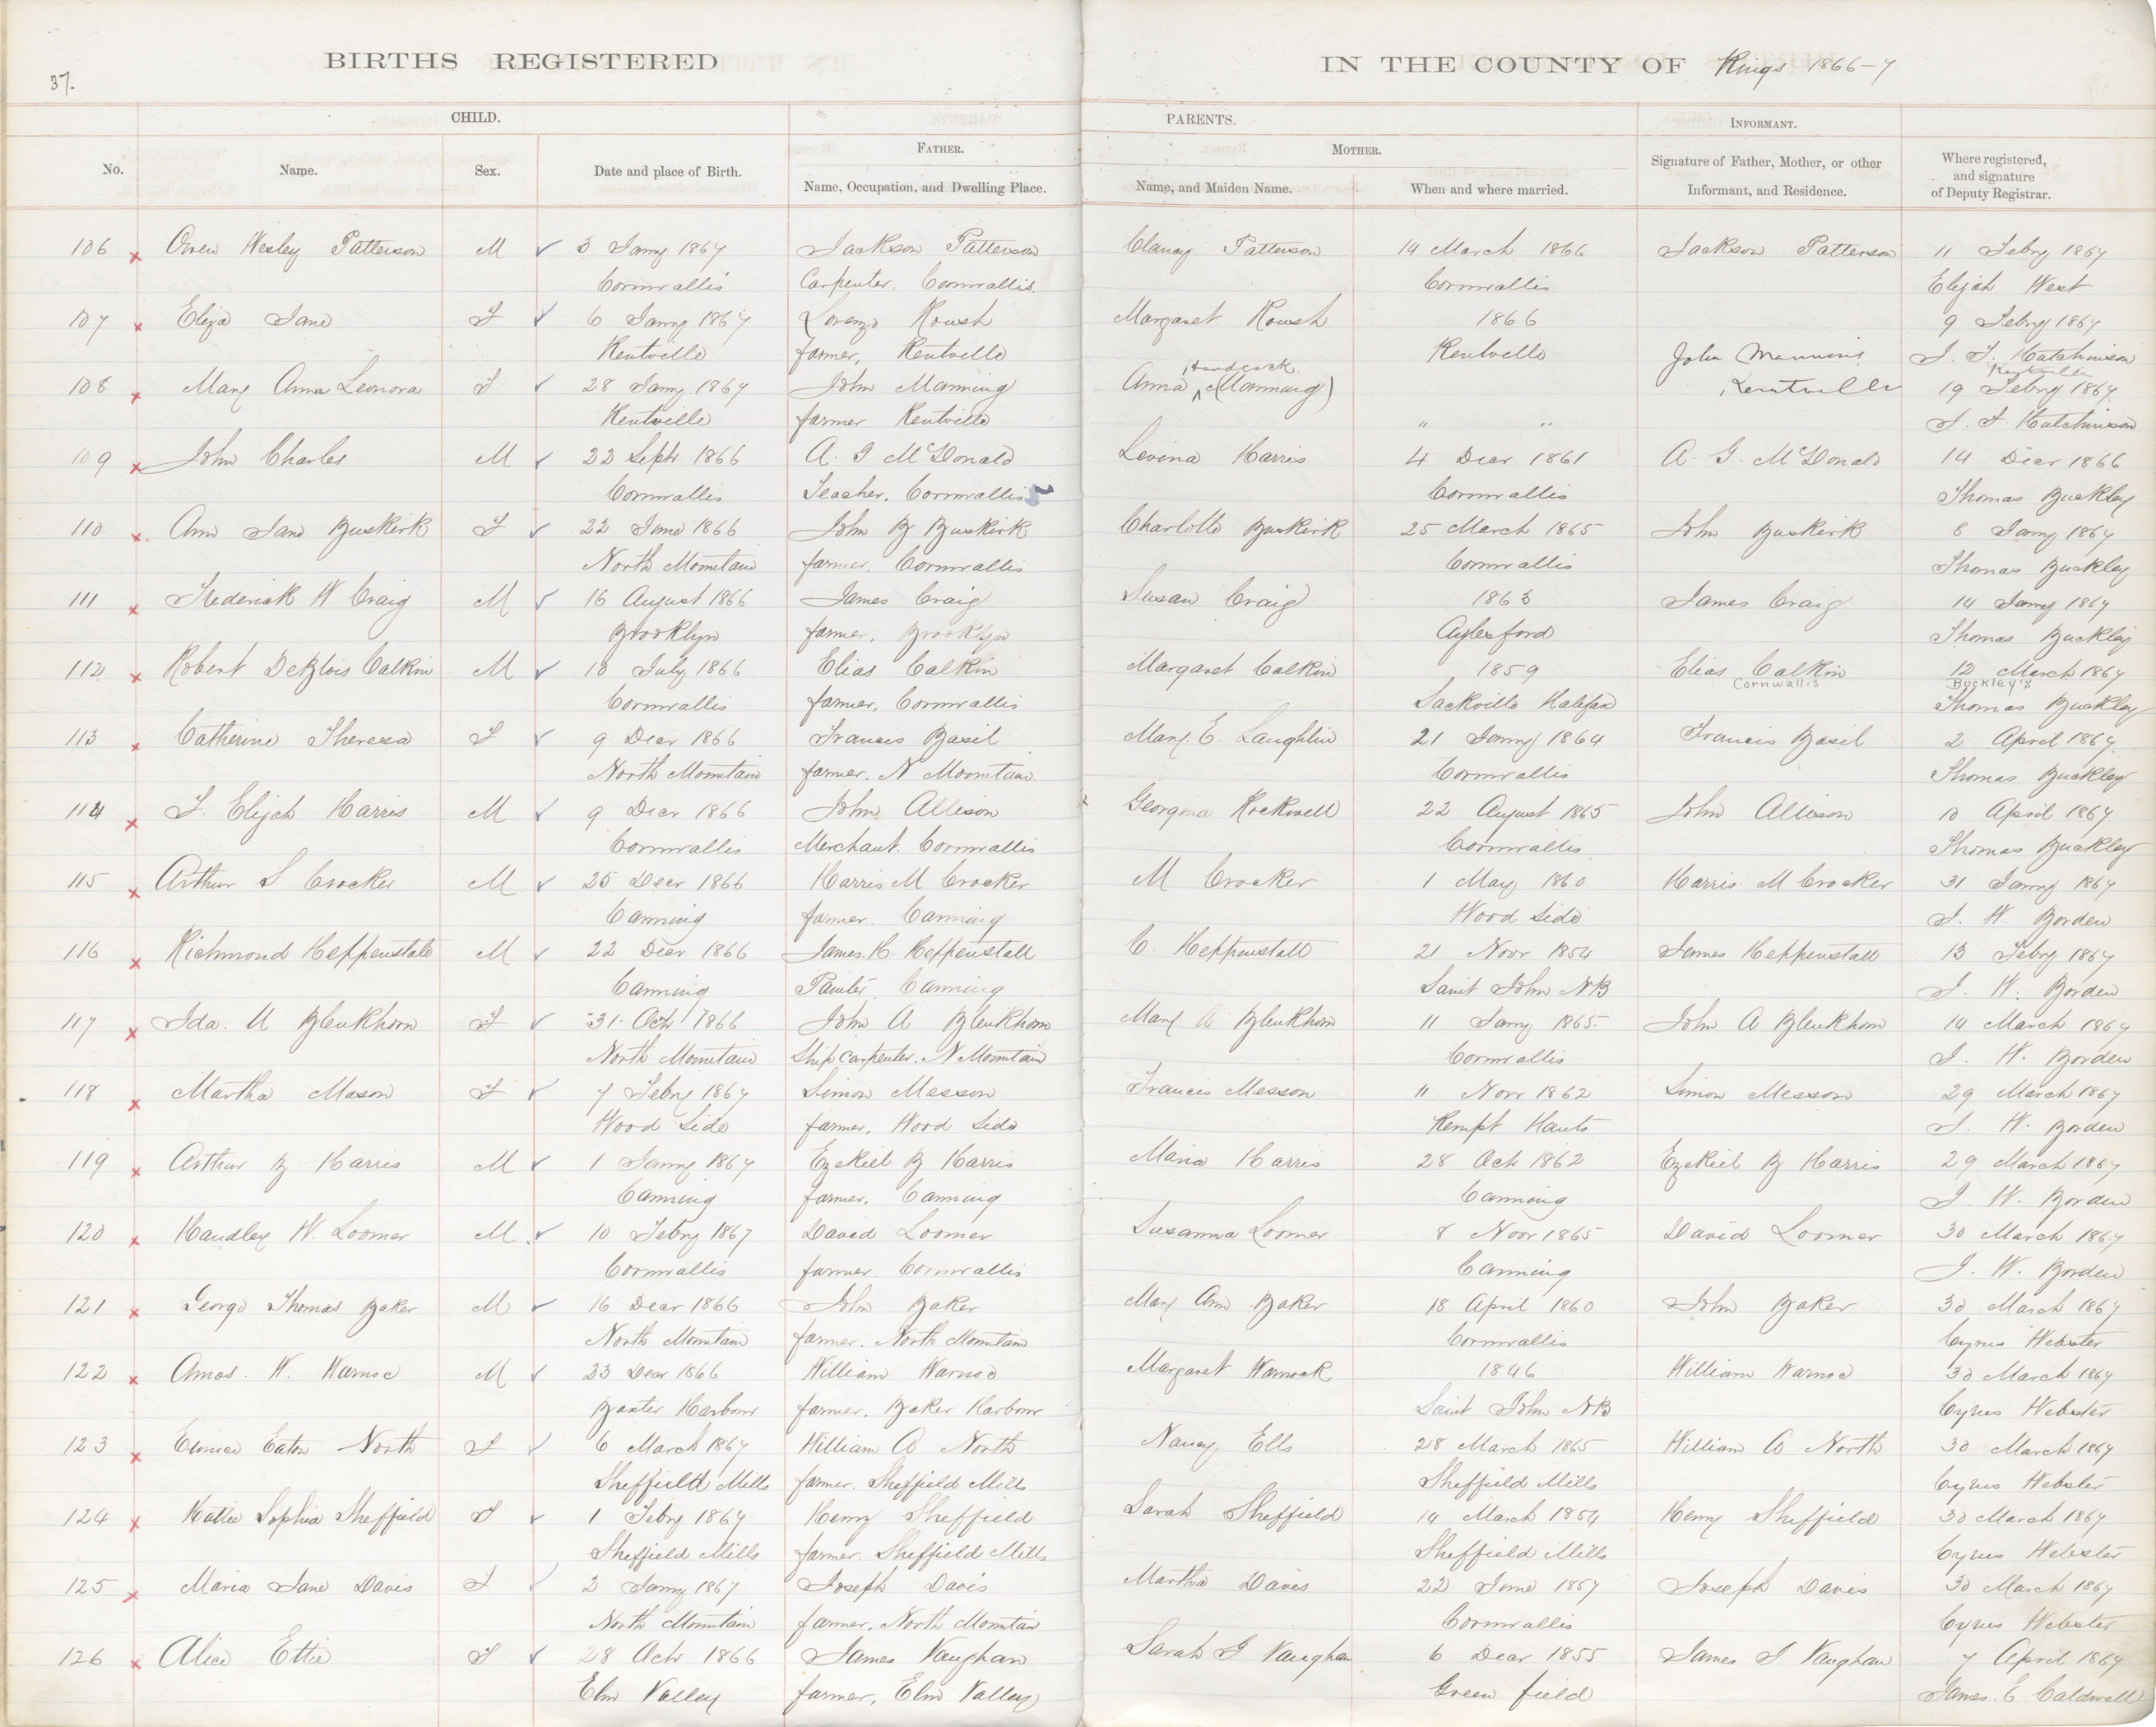 37.
BIRTHS REGISTERED IN THE COUNTY OF Kings 1866-7
CHILD. PARENTS. INFORMANT.
FATHER. MOTHER.
No. Name. Sex. Date and place of Birth. Name, Occupation, and Dwelling Place. Name, and Maiden Name. When and where married. Signature of Father, Mother, or other Informant, and Residence. Where registered, and signature of Deputy Registrar.
106 Owen Wesley Patterson M 3 Jany 1867 Jackson Patterson Clancy Patterson 14 March 1866 Jackson Patterson 11 Febry 1867
Cornwallis Carpenter. Cornwallis. Cornwallis Elijah West
107 Eliza Jane F 6 Jany 1867 Lorenzo Roush Margaret Roush 1866 9 Febry 1867
Kentville farmer, Kentville Kentville J. F. Hutchinson
Kentville
108 Mary Anna Leonora F 28 Jany 1867 John Manning Anna Handcock (Manning) John Manning 19 Febry 1867
Kentville farmer. Kentville " " Kentville J. F. Hutchinson
109 John Charles M 22 Septr 1866 A. G McDonald Levina Harris 4 Decr 1861 A. G. McDonald 14 Decr 1866
Cornwallis Teacher. Cornwallis Cornwallis Thomas Buckley
110 Ann Jane Buskirk F 22 June 1866 John B Buskirk Charlotte Buskirk 25 March 1865 John Buskirk 8 Jany 1867
North Mountain farmer, Cornwallis Cornwallis Thomas Buckley
111 Frederick W Craig M 16 August 1866 James Craig Susan Craig 1863 James Craig 14 Jany 1867
Brooklyn farmer, Brooklyn Aylesford Thomas Buckley
112 Robert DeBlois Calkin M 10 July 1866 Elias Calkin Margaret Calkin 1859 Elias Calkin 12 March 1867
Cornwallis Buckley's
Cornwallis farmer, Cornwallis Sackville Halifax Thomas Buckley
113 Catherine Theresa F 9 Decr 1866 Francis Basil Mary. E. Laughlin 21 Jany 1864 Francis Basil 2 April 1867
North Mountain farmer. N Mountain. Cornwallis Thomas Buckley
114 F. Elijah Harris M 9 Decr 1866 John Allison Georgina Rockwell 22 August 1865 John Allison 10 April 1867
Cornwallis Merchant. Cornwallis Cornwallis Thomas Buckley
115 Arthur S Crocker M 25 Decr 1866 Harris M Crocker M Crocker 1 May 1860 Harris M Crocker 31 Jany 1867
Canning farmer. Canning Wood Side J. W. Borden
116 Richmond Heppenstale M 22 Decr 1866 James. H. Heppenstall C. Heppenstall 21 Novr 1854 James Heppenstall 13 Febry 1867
Canning Painter Canning Saint John NB J. W. Borden
117 Ida. U Blenkhorn F 31 Octr 1866 John A Blenkhorn Mary A Blenkhorn 11 Jany 1865 John A Blenkhorn 14 March 1867
North Mountain Ship carpenter. N Mountain Cornwallis J. W. Borden
118 Martha Mason F 7 Febry 1867 Simon Messon Francis Messon 11 Novr 1862 Simon Messon 29 March 1867
Wood Side farmer, Wood Side Kempt Hants J. W. Borden
119 Arthur B Harris M 1 Jany 1867 Ezekiel B Harris Maria Harris 28 Octr 1862 Ezekiel B Harris 29 March 1867
Canning farmer. Canning Canning J. W. Borden
120 Handley W. Loomer M 10 Febry 1867 David Loomer Susanna Loomer 8 Novr 1865 David Loomer 30 March 1867
Cornwallis farmer. Cornwallis Canning J. W. Borden
121 George Thomas Baker M 16 Decr 1866 John Baker Mary Ann Baker 18 April 1860 John Baker 30 March 1867
North Mountain farmer. North Mountain Cornwallis Cyrus Webster
122 Amos. W. Warnoc M 23 Decr 1866 William Warnoc Margaret Warnock 1846 William Warnoc 30 March 1867
Baxter Harbour farmer. Baker Harbour Saint John NB Cyrus Webster
123 Eunice Eaton North F 6 March 1867 William A North Nancy Ells 28 March 1865 William A North 30 March 1867
Sheffield Mills farmer. Sheffield Mills Sheffield Mills Cyrus Webster
124 Hattie Sophia Sheffield F 1 Febry 1867 Henry Sheffield Sarah Sheffield 14 March 1854 Henry Sheffield 30 March 1867
Sheffield Mills farmer. Sheffield Mills Sheffield Mills Cyrus Webster
125 Maria Jane Davis F 2 Jany 1867 Joseph Davis Martha Davis 22 June 1857 Joseph Davis 30 March 1867
North Mountain farmer, North Mountain Cornwallis Cyrus Webster
126 Alice Ettie F 28 Octr 1866 James Vaughan Sarah G Vaughan 6 Decr 1855 James S Vaughan 7 April 1867
Elm Valley farmer, Elm Valley Green field James. E. Caldwell